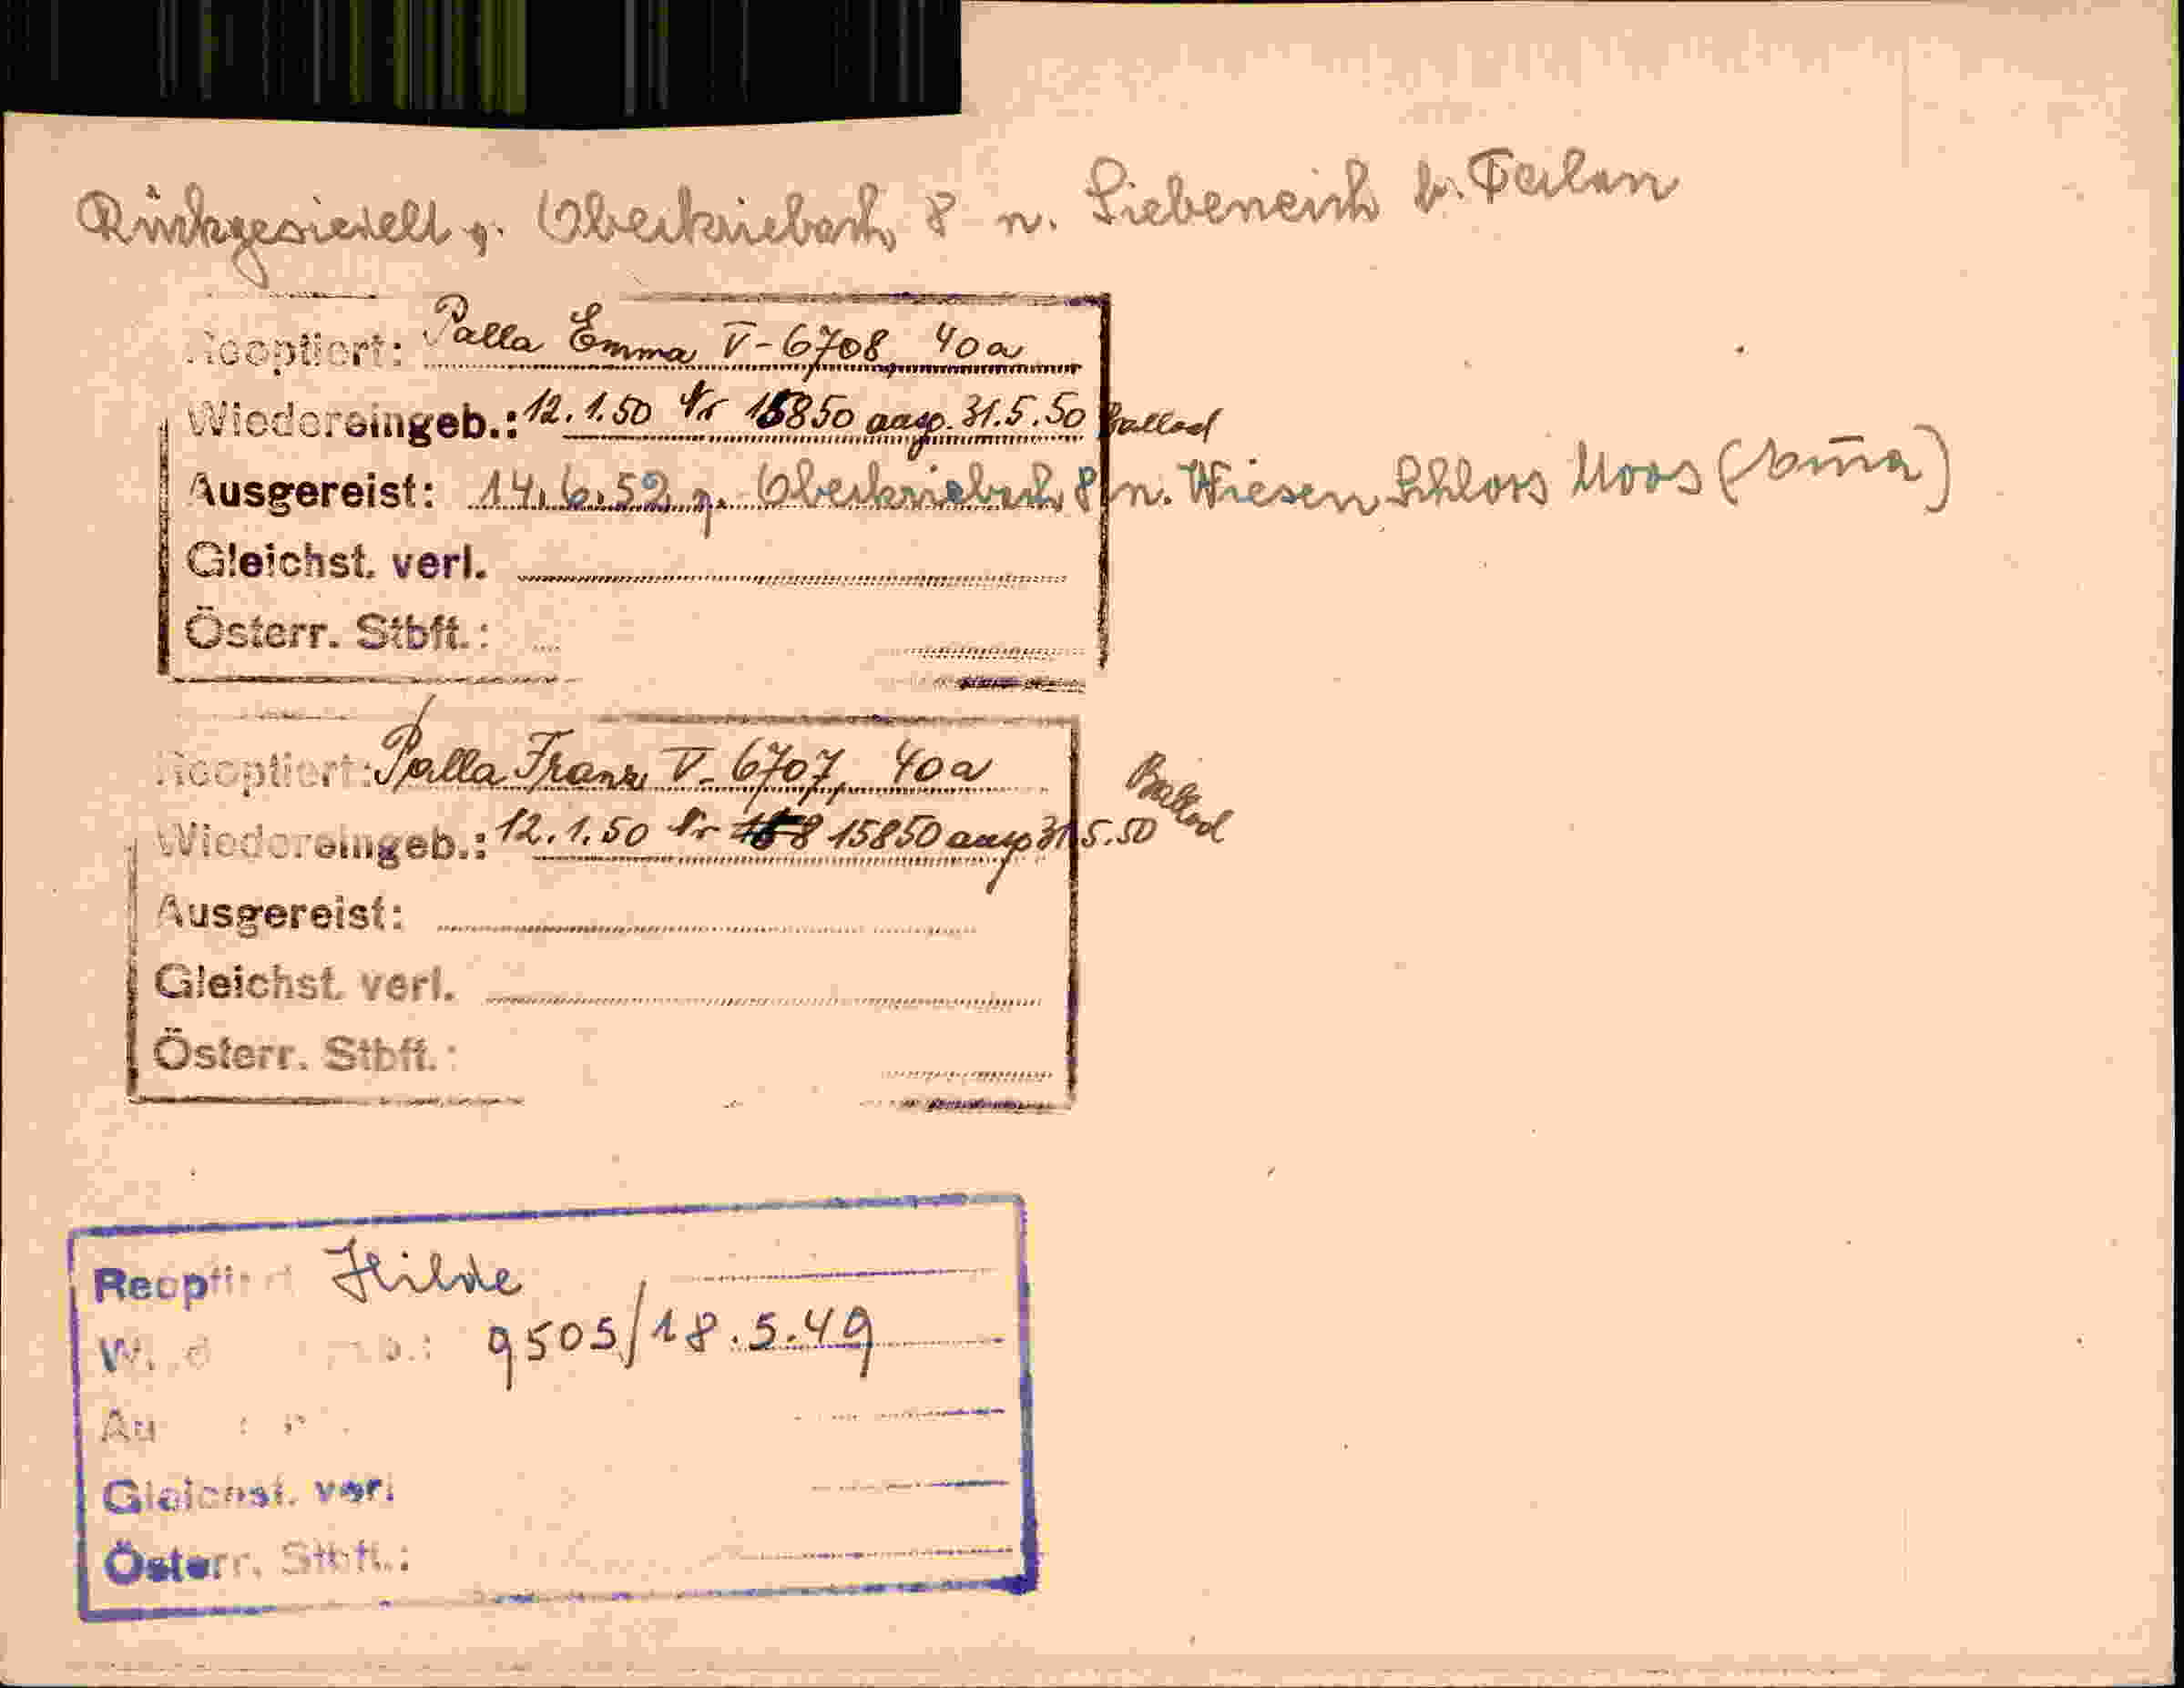 Rückgesiedelt v. Oberkriebach 8 n. Siebeneich b. Terlan
Reoptiert: Palla Emma V-6708 40a
Wiedereingeb.: 12.1.50 Nr 15850 ausg. 31.5.50 Ballad
Ausgereist: 14.6.52 v. Oberkriebach 8 n. Wiesen Schloss Moos
Gleichst. verl.
Österr. Stbft.:
Reoptiert: Palla Franz V-6707, 40a
Wiedereingeb.: 12.1.50 Nr 158 15850 ausg 31.5.50 Ballad
Ausgereist:
Gleichst. verl.
Österr. Stbft.:
Reoptiert Hilde
9505/18.5.49
Gleichst. verl
Österr. Stbft.: